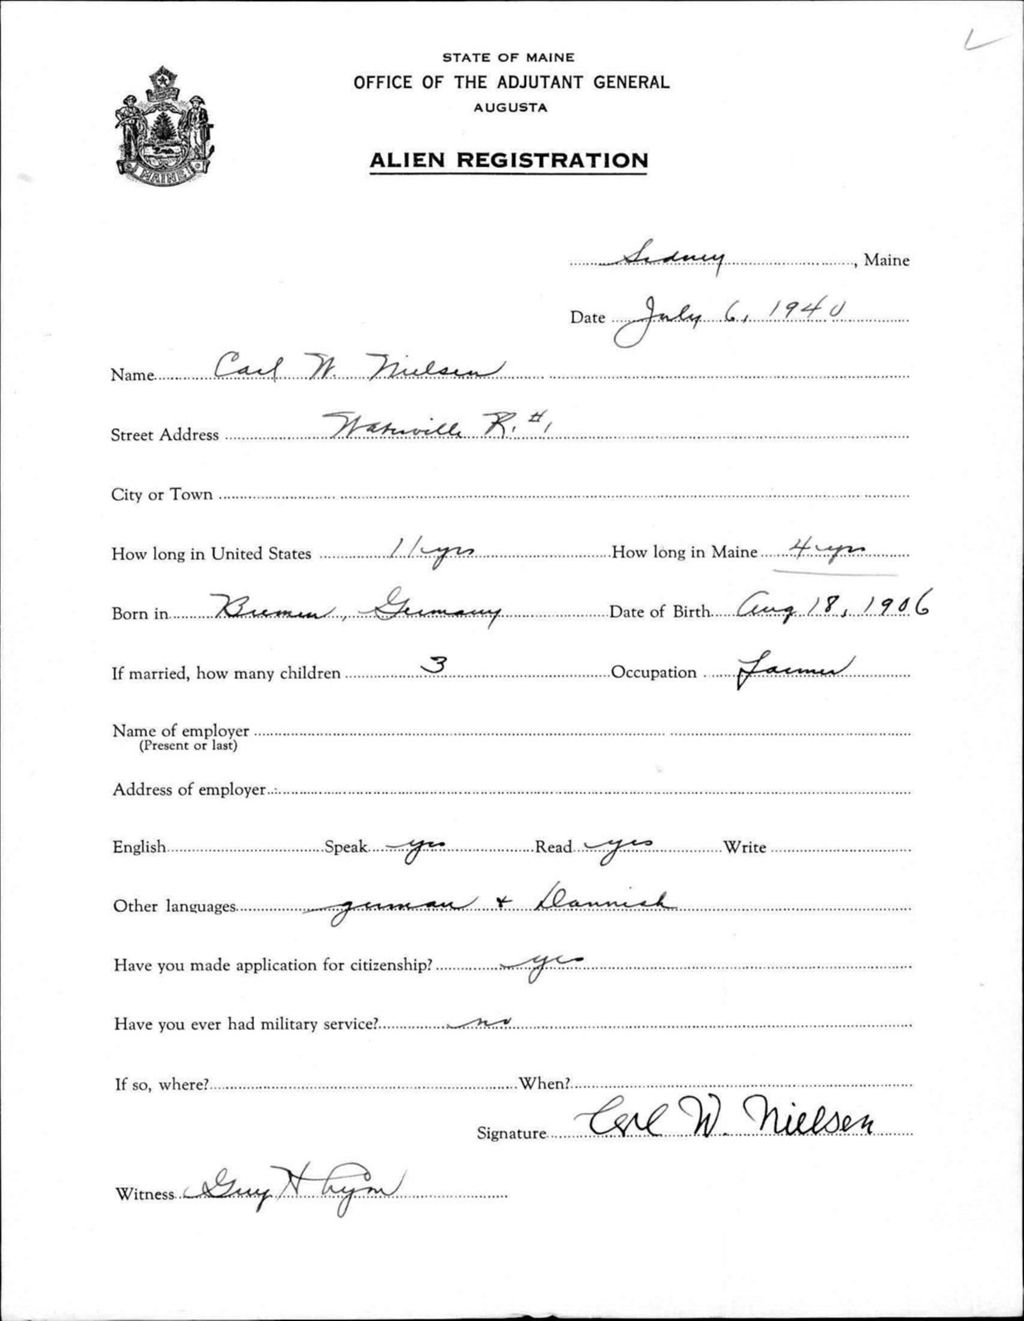 STATE OF MAINE
OFFICE OF THE ADJUTANT GENERAL
AUGUSTA
ALIEN REGISTRATION
MAINE
Sidney, Maine
Date July 6, 1940
Name Carl W. Nielsen
Street Address Waterville R. #1
City or Town
How long in United States 11 yrs How long in Maine 4 yrs
Born in Bremen, Germany Date of Birth Aug 18, 1906
If married, how many children 3 Occupation Farmer
Name of employer
(Present or last)
Address of employer
English Speak yes Read yes Write
Other languages german + Dannish
Have you made application for citizenship? yes
Have you ever had military service? no
If so, where? When?
Signature Carl W. Nielsen
Witness Guy H